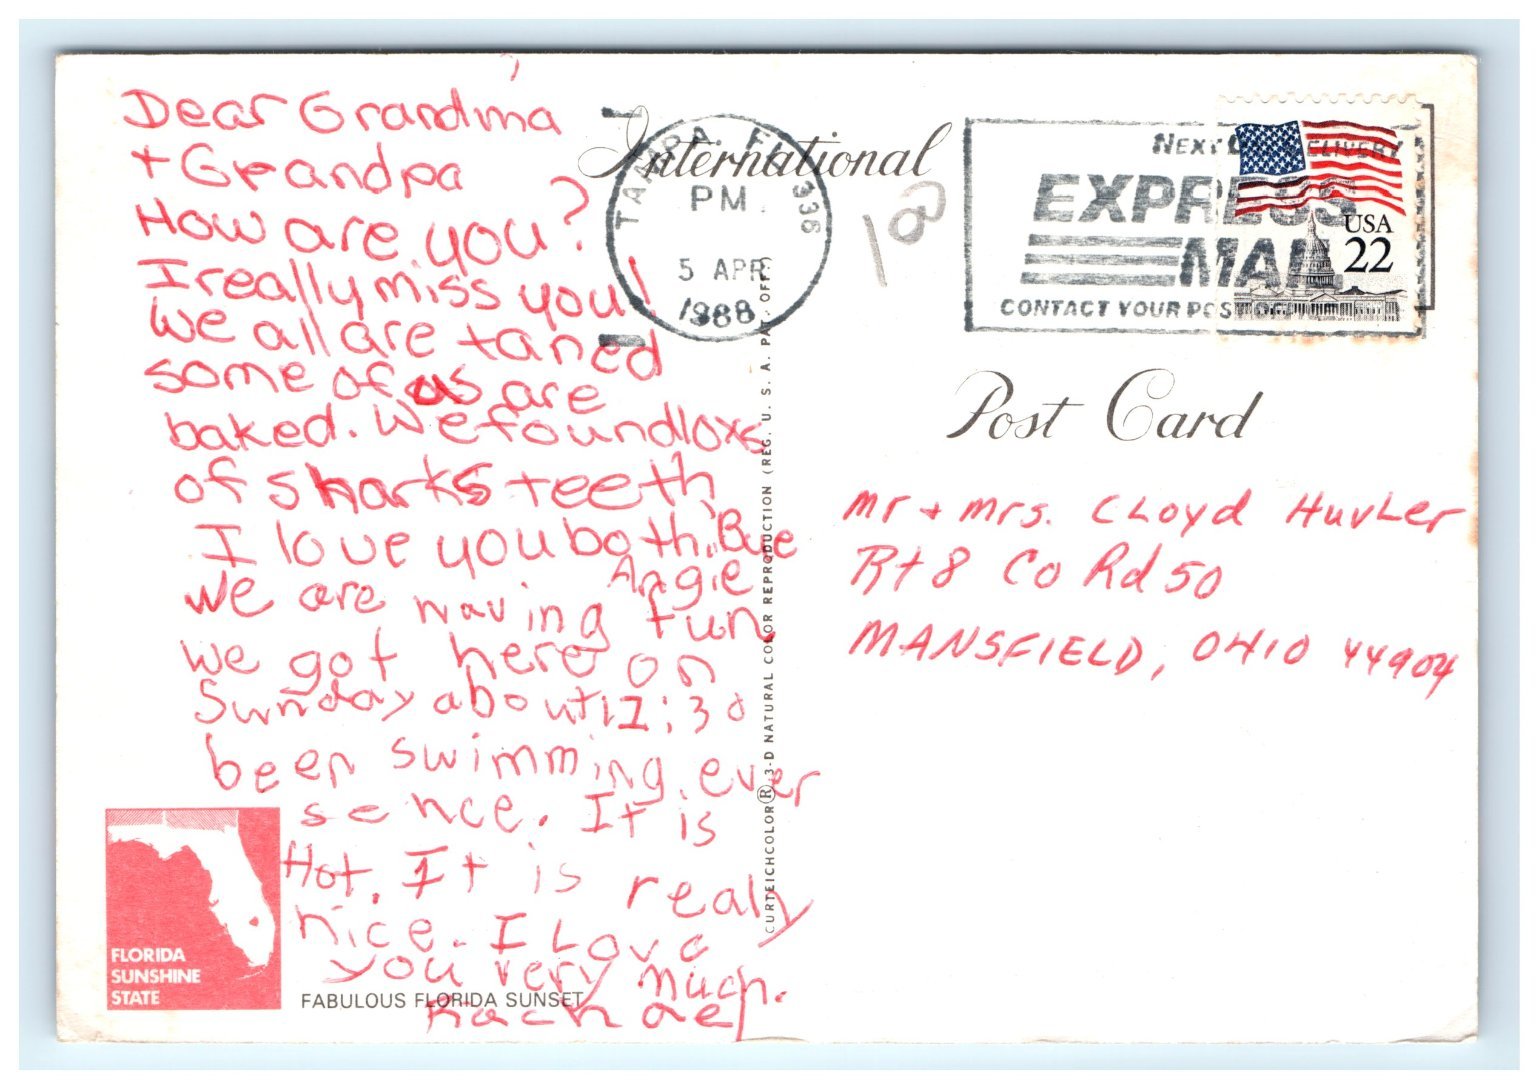 Dear Grandma
+ Grandpa
How are you?
I really miss you!
We all are taned
some of us are
baked. We found loxs
of sharks teeth
I love you both. Bye
Angie
We are having fun
we got here on
Sunday about 12:30
been swimming ever
sence. It is
Hot. It is
realy
nice. I Love
you very much.
Rachael
FLORIDA
SUNSHINE
STATE
FABULOUS FLORIDA SUNSET
CURTEICHCOLOR® 3-D NATURAL COLOR REPRODUCTION (REG. U. S. A. PAT. OFF.)
International
Post Card
100
TAMPA, FL 336
PM
5 APR
1988
NEXT DAY DELIVERY
EXPRESS
MAIL
CONTACT YOUR POST OFFICE
USA
22
Mr + Mrs. CLoyd
Rt 8 Co Rd 50
MANSFIELD, OHIO 44904